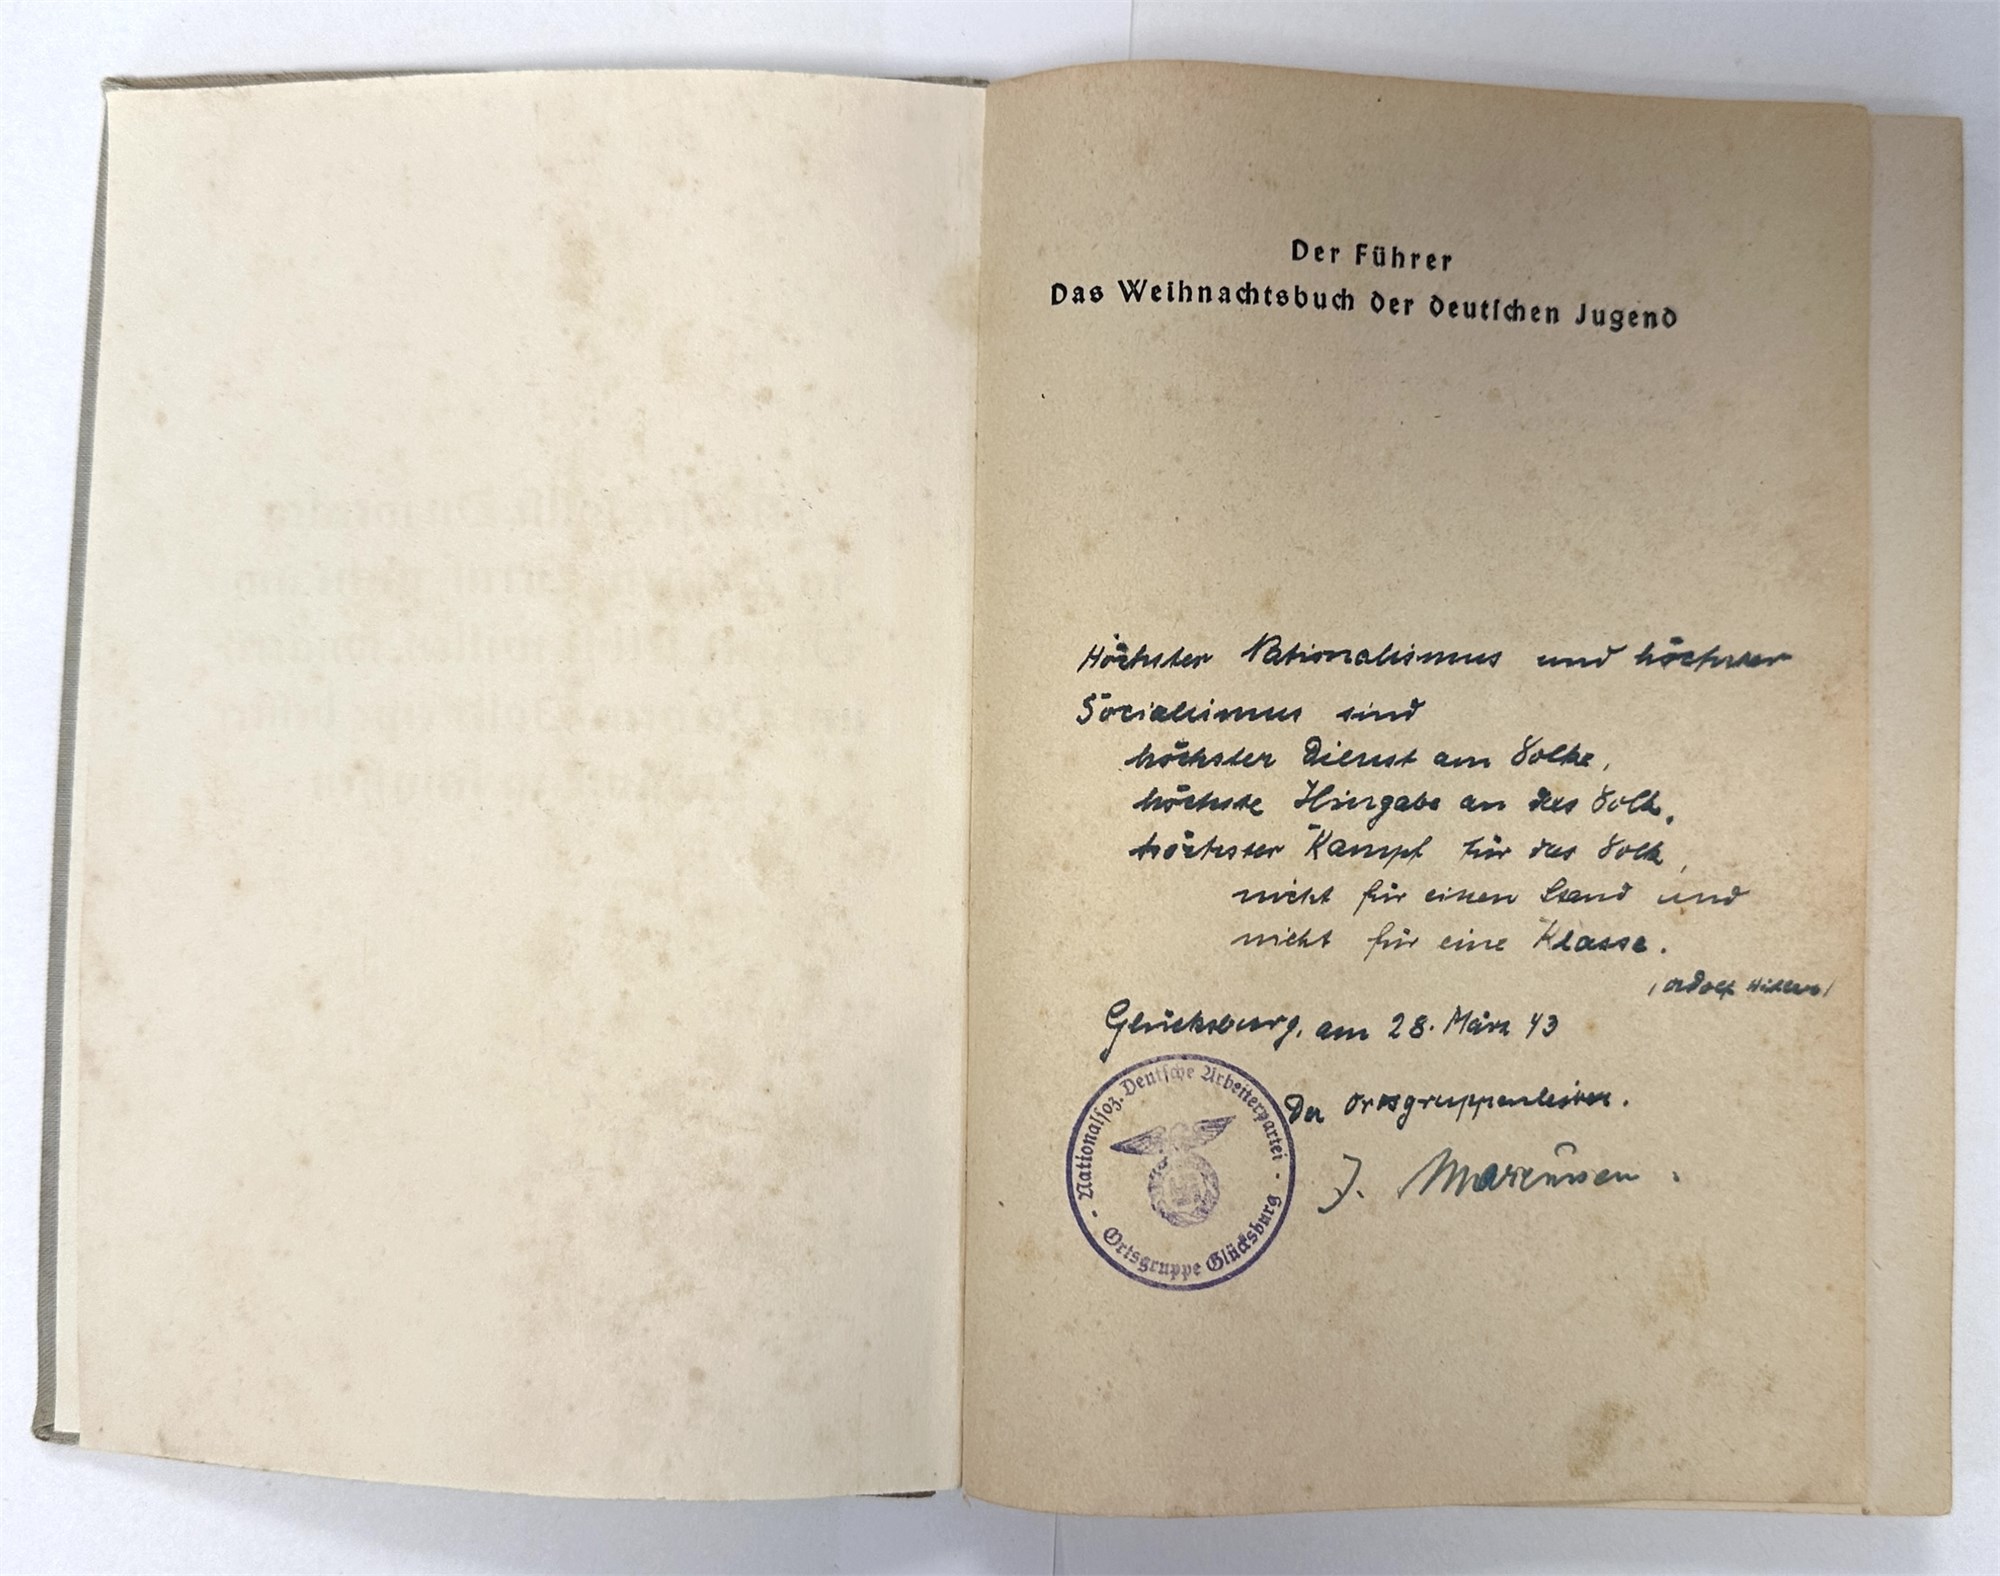 Der Führer
Das Weihnachtsbuch der deutschen Jugend
Höchster Nationalismus und höchster
Sozialismus sind
höchster Dienst am Volke,
höchste Hingabe an das Volk,
höchster Kampf für das Volk,
nicht für einen Stand und
nicht für eine Klasse.
(Adolf Hitler)
Glücksburg, am 28. März 43
Der Ortsgruppenleiter.
J. Marcussen.
- Nationalsoz. Deutsche Arbeiterpartei -
Ortsgruppe Glücksburg